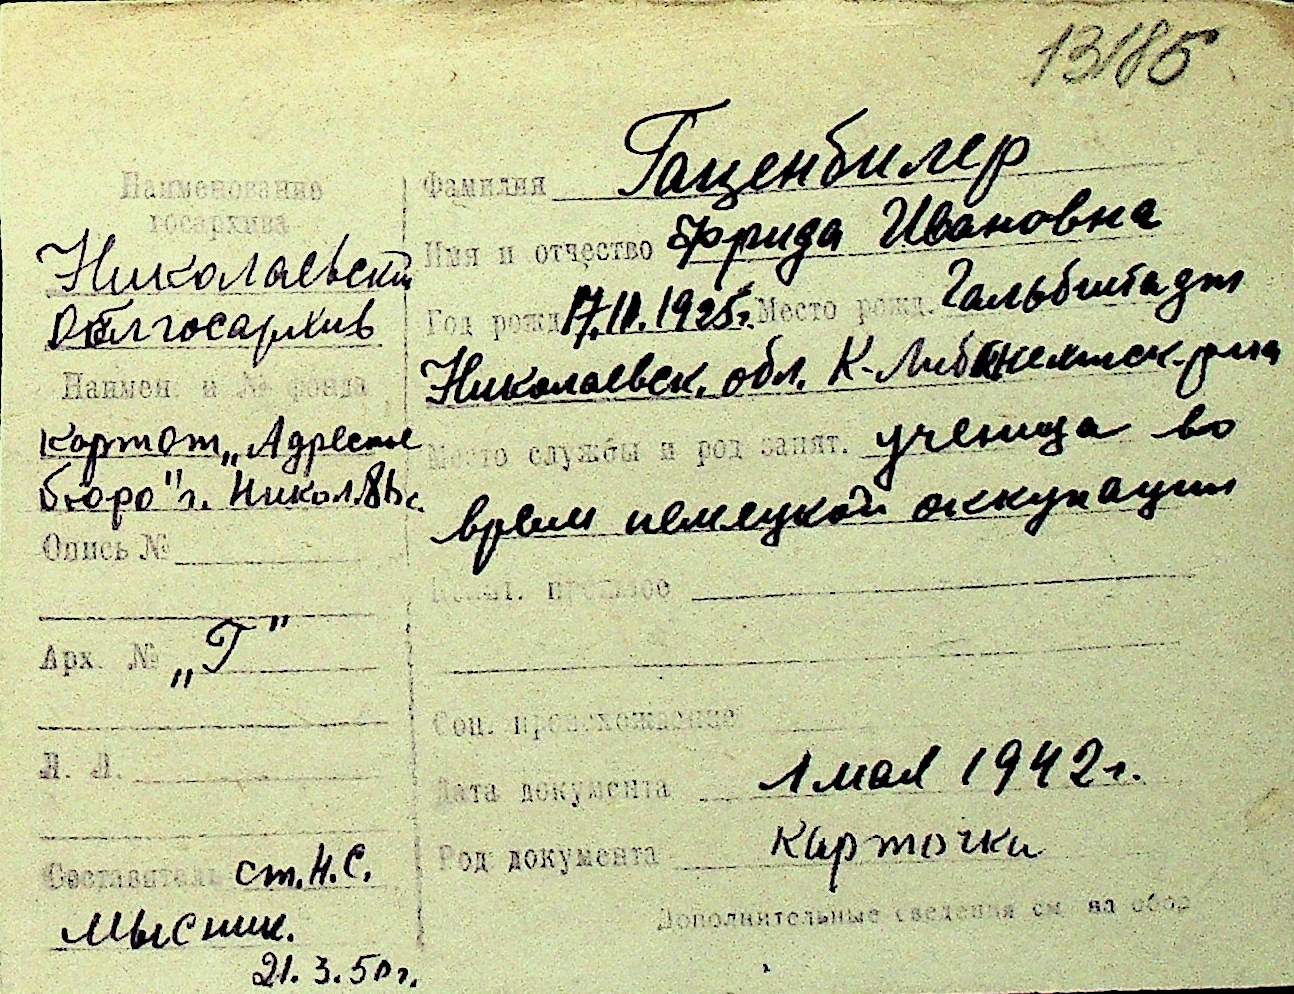 13185
Наименование
госархива
Николаевский
Облгосархив
Наимен. и № фонда
Картот. „Адресное
бюро" г. Никол.
Опись №
Арх. № „Г"
Л. Л.
Составитель ст. Н.С.
Мысник.
21.3.50 г.
Фамилия Гаценбилер
Имя и отчество Фрида Ивановна
Год рожд. 1925 г. Место рожд. Гальбштадт
Николаевск. обл. К.-Либкнехтск. р-на
Место службы и род занят. ученица во
время немецкой оккупации
Полит. прошлое
Соц. происхождение
Дата документа 1 мая 1942 г.
Род документа карточки
Дополнительные сведения см. на обор